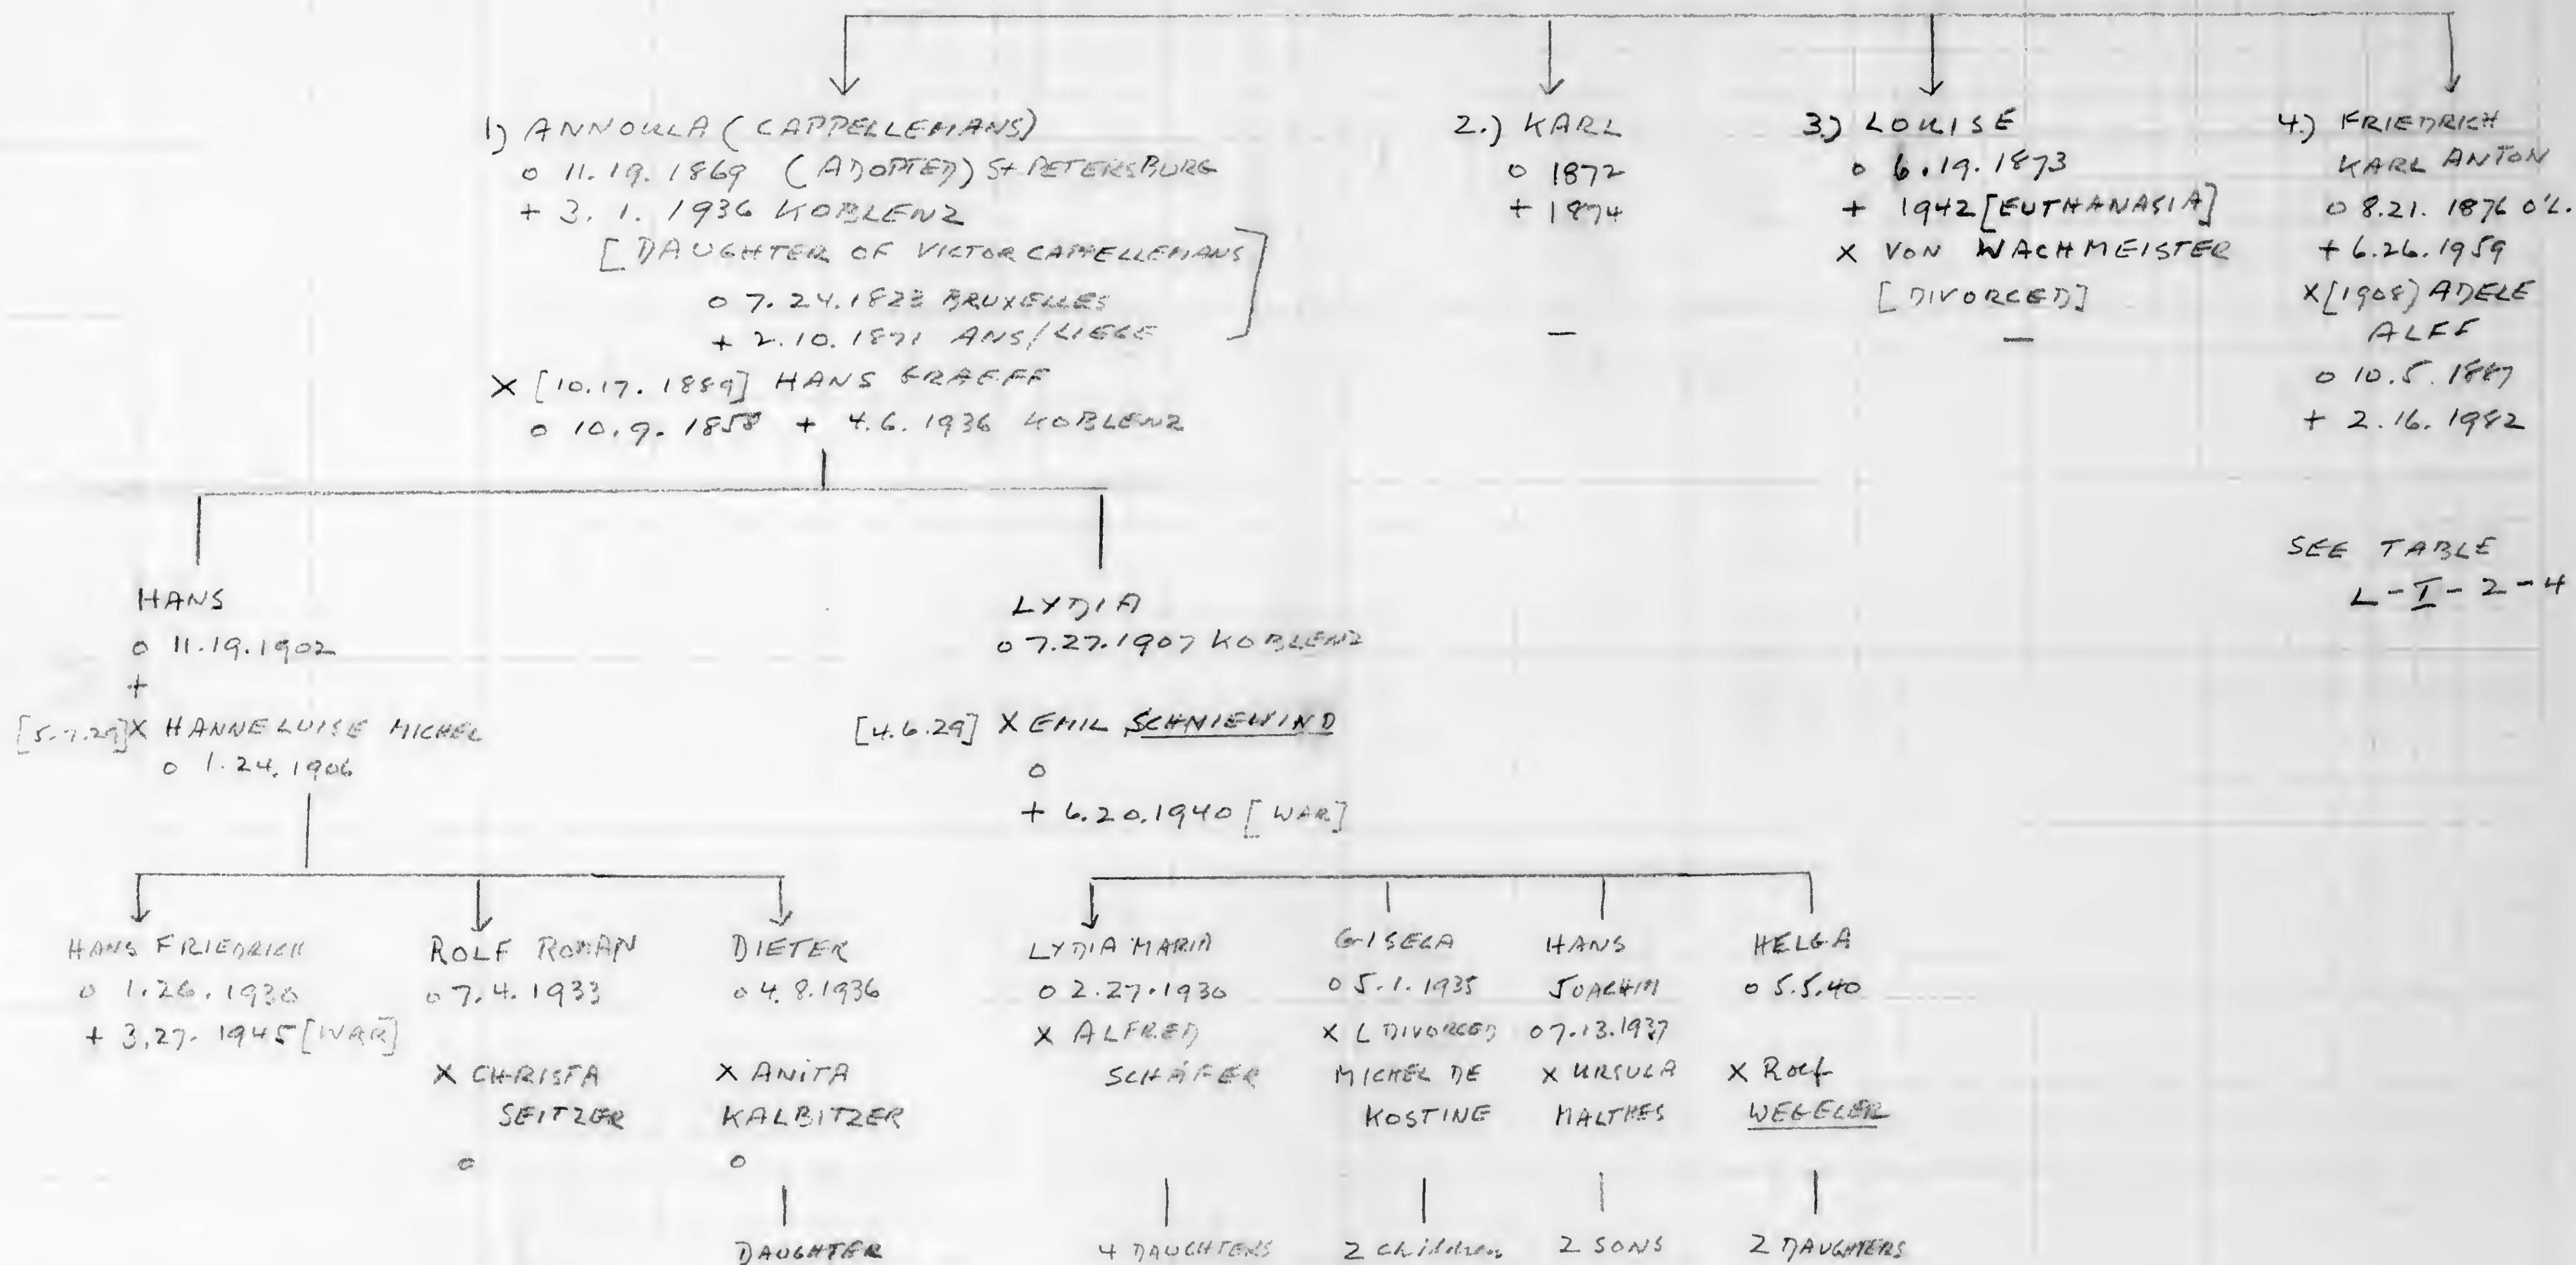 1) ANNOULA (CAPPELLEMANS)
o 11.19.1869 (ADOPTED) St PETERSBURG
+ 3.1.1936 KOBLENZ
[DAUGHTER OF VICTOR CAPPELLEMANS
o 7.24.1823 BRUXELLES
+ 2.10.1871 ANS/LIEGE ]
X [10.17.1889] HANS GRAEFF
o 10.9.1858 + 4.6.1936 KOBLENZ
2.) KARL
o 1872
+ 1874
—
3.) LOUISE
o 6.19.1873
+ 1942 [EUTHANASIA]
X VON WACHMEISTER
[DIVORCED]
—
4.) FRIEDRICH
KARL ANTON
o 8.21.1876 O'L.
+ 6.26.1959
X [1908] ADELE
ALFF
o 10.5.1887
+ 2.16.1982
SEE TABLE
L-I-2-4
HANS
o 11.19.1902
+
[5.7.29] X HANNELUISE MICHEL
o 1.24.1906
LYDIA
o 7.27.1907 KOBLENZ
[4.6.29] X EMIL SCHNIEWIND
o
+ 6.20.1940 [WAR]
HANS FRIEDRICH
o 1.26.1930
+ 3.27.1945 [WAR]
ROLF ROMAN
o 7.4.1933
X CHRISTA
SEITZER
o
DIETER
o 4.8.1936
X ANITA
KALBITZER
o
DAUGHTER
LYDIA MARIA
o 2.27.1930
X ALFRED
SCHÄFER
4 DAUGHTERS
GISELA
o 5.1.1935
X [DIVORCED
MICHEL DE
KOSTINE
2 children
HANS
JOACHIM
o 7.13.1937
X URSULA
MALTHES
2 SONS
HELGA
o 5.5.40
X Rolf
WEGELER
2 DAUGHTERS